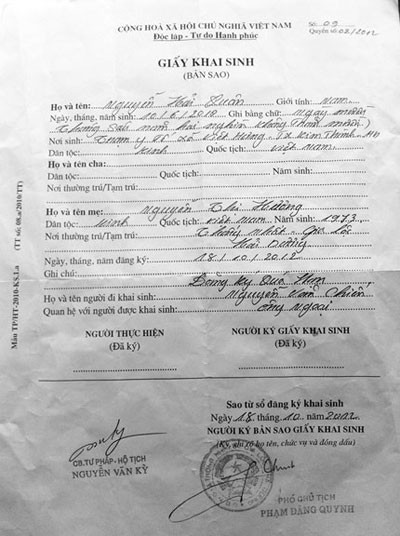 CỘNG HOÀ XÃ HỘI CHỦ NGHĨA VIỆT NAM
Độc lập - Tự do Hạnh phúc
Số: 09
Quyển số 02/2012
GIẤY KHAI SINH
(BẢN SAO)
Họ và tên: Nguyễn Giới tính: Nam
Ngày, tháng, năm sinh: 10/6/2010 Ghi bằng chữ: Ngày mười
tháng sáu năm hai nghìn không trăm mười
Nơi sinh: Trạm y tế xã
Dân tộc: Kinh Quốc tịch: Việt Nam
Họ và tên cha:
Dân tộc: Quốc tịch: Năm sinh:
Nơi thường trú/Tạm trú:
Họ và tên mẹ: Nguyễn Thị Hường
Dân tộc: Kinh Quốc tịch: Việt Nam. Năm sinh: 1973
Nơi thường trú/Tạm trú: Thống Nhất - Gia Lộc
Hải Dương
Ngày, tháng, năm đăng ký: 18/10/2012
Ghi chú: Đăng ký Quá hạn
Họ và tên người đi khai sinh: Nguyễn Văn
Quan hệ với người được khai sinh: Ông ngoại
NGƯỜI THỰC HIỆN
(Đã ký)
NGƯỜI KÝ GIẤY KHAI SINH
(Đã ký)
Sao từ sổ đăng ký khai sinh
Ngày 18 tháng 10 năm 2012
NGƯỜI KÝ BẢN SAO GIẤY KHAI SINH
(Ký, ghi rõ họ tên, chức vụ và đóng dấu)
CB.TƯ PHÁP - HỘ TỊCH
NGUYỄN VĂN KỶ
PHÓ CHỦ TỊCH
PHẠM ĐĂNG QUỲNH
Mẫu TP/HT-2010-KS.1.a (TT số: 08.a/2010/TT)